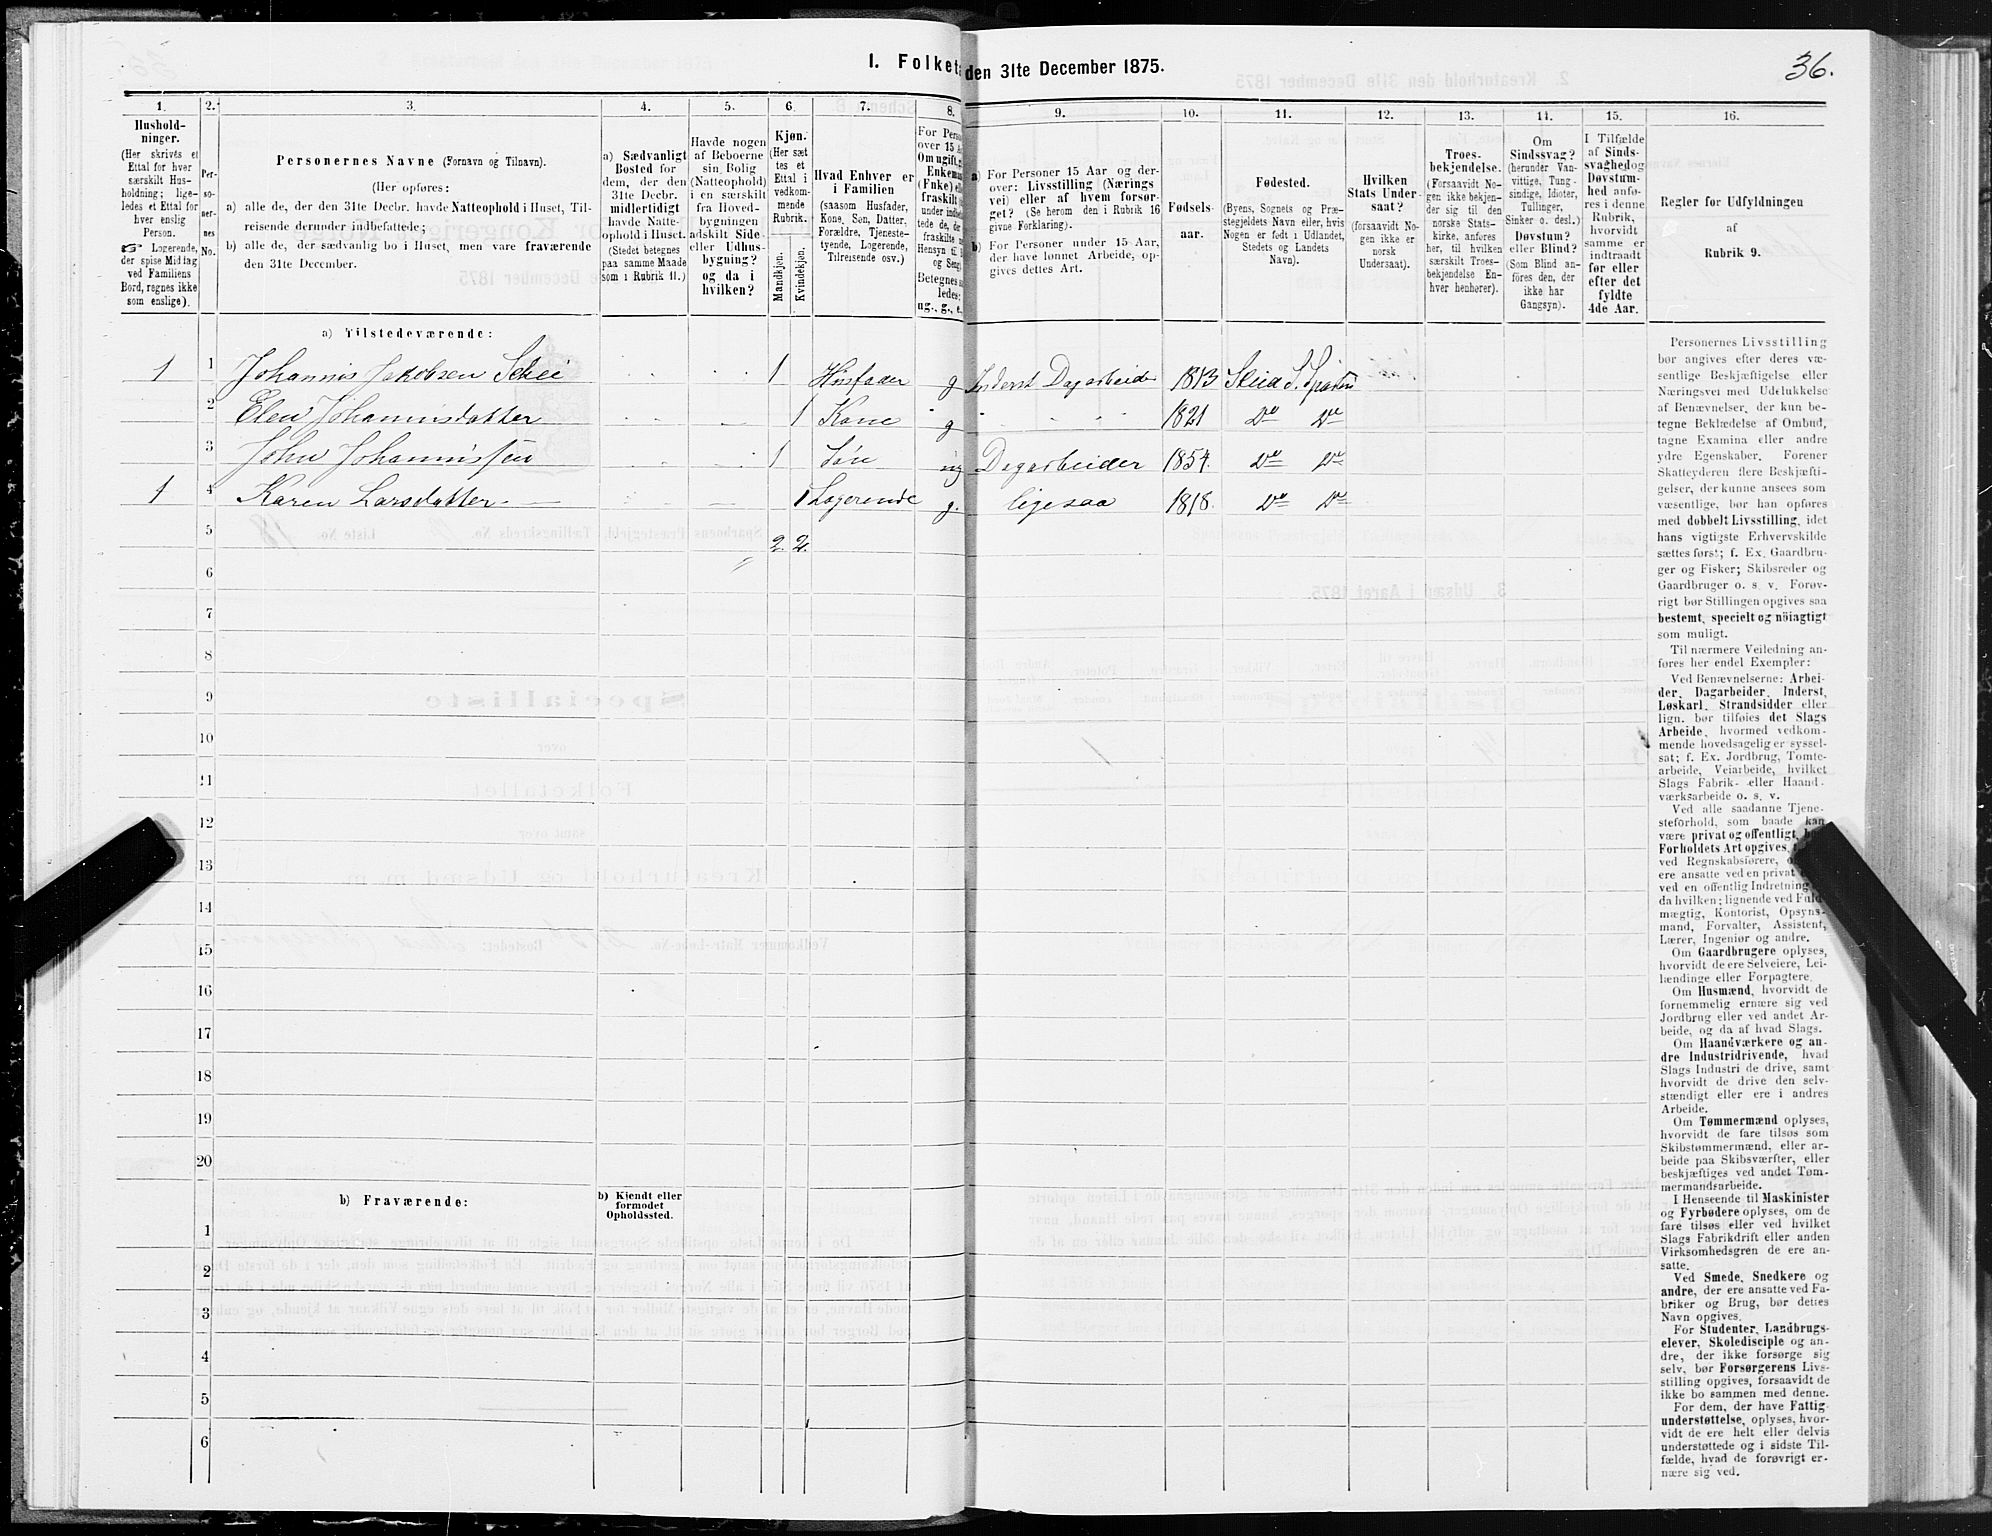 I. Folket
den 31te December 1875.
36.
1.
2.
3.
4.
5.
6.
7.
8.
9.
10.
11.
12.
13.
14.
15.
16.
Hushold-
ninger.
(Her skrives et
Ettal for hver
særskilt Hus-
holdning; lige-
ledes et Ettal for
hver enslig
Person.
☞ Logerende,
der spise Middag
ved Familiens
Bord, regnes ikke
som enslige).
Per-
so-
ner-
nes
No.
Personernes Navne (Fornavn og Tilnavn).
(Her opføres:
a) alle de, der den 31te Decbr. havde Natteophold i Huset, Til-
reisende derunder indbefattede;
b) alle de, der sædvanlig bo i Huset, men vare fraværende
den 31te December.
a) Sædvanligt
Bosted for
dem, der den
31te Decbr.
midlertidigt
havde Natte-
ophold i Huset.
(Stedet betegnes
paa samme Maade
som i Rubrik 11.)
Havde nogen
af Beboerne
sin Bolig
(Natteophold)
i en særskilt
fra Hoved-
bygningen
adskilt Side-
eller Udhus-
bygning?
og da i
hvilken?
Kjøn.
(Her sæt
tes et
Ettal i
vedkom-
mende
Rubrik.
Mandkjøn.
Kvindekjøn.
Hvad Enhver er
i Familien
(saasom Husfader,
Kone, Søn, Datter,
Forældre, Tjeneste-
tyende, Logerende,
Tilreisende osv.)
For Pers
over 15 A
Om ugift, g
Enkema
(Enke) el
fraskilt
under indbe
ledes de,
der
fraskilte
Hensyn til
og Seng
Betegnes s
ledes:
ug., g., e.
a) For Personer 15 Aar og der-
over: Livsstilling (Nærings
vei) eller af hvem forsør-
get? (Se herom den i Rubrik 16
givne Forklaring).
b) For Personer under 15 Aar,
der have lønnet Arbeide, op-
gives dettes Art.
Fødsels-
aar.
Fødested.
(Byens, Sognets og Præ-
stegjeldets Navn eller, hvis
Nogen er født i Udlandet,
Stedets og Landets
Navn).
Hvilken
Stats Under-
saat?
(forsaavidt No-
gen ikke er
norsk
Undersaat).
Troes-
bekjendelse.
(Forsaavidt No-
gen ikke bekjen-
der sig til den
norske Stats-
kirke, anføres
her, til hvilken
særskilt Troes-
bekjendelse En-
hver henhører).
Om
Sindssvag?
(herunder Van-
vittige, Tung-
sindige, Idioter,
Tullinger,
Sinker o. desl.)
Døvstum?
eller Blind?
(Som Blind an-
føres den, der
ikke har
Gangsyn).
I Tilfælde
af Sinds-
svaghed og
Døvstum-
hed anfø-
res i denne
Rubrik,
hvorvidt
samme er
indtraadt
før eller
efter det
fyldte
4de Aar.
Regler for Udfyldningen
af
Rubrik 9.
a) Tilstedeværende:
1 1 Johannis Jakobsen Schei 1 Husfader g Inderst Dagarbeider 1813 Skeid S. Sparbu
2 Elen Johannisdatter 1 Kone g 1821 Do Do
3 John Johannissen 1 Søn ug Dagarbeider 1854. Do Do
1 4 Karen Larsdatter 1 Logerende g. ligesaa 1818. Do Do
5 2. 2.
6
7
8
9
10
11
12
13
14
15
16
17
18
19
20
b) Fraværende:
b) Kjendt eller
formodet
Opholdssted.
1
2
3
4
5
6
Personernes Livsstilling
bør angives efter deres væ-
sentlige Beskjæftigelse eller
Næringsvei med Udelukkelse
af Benævnelser, der kun be-
tegne Beklædelse af Ombud,
tagne Examina eller andre
ydre Egenskaber. Forener
Skatteyderen flere Beskjæfti-
gelser, der kunne ansees som
væsentlige, bør han opføres
med dobbelt Livsstilling, idet
hans vigtigste Erhvervskilde
sættes først; f. Ex. Gaardbru-
ger og Fisker; Skibsreder og
Gaardbruger o. s. v. Forøv-
rigt bør Stillingen opgives saa
bestemt, specielt og nøiagtigt
som muligt.
Til nærmere Veiledning an-
føres her endel Exempler:
Ved Benævnelserne: Arbei-
der, Dagarbeider, Inderst,
Løskarl, Strandsidder eller
lign. bør tilføies det Slags
Arbeide, hvormed vedkom-
mende hovedsagelig er syssel-
sat; f. Ex. Jordbrug, Tomte-
arbeide, Veiarbeide, hvilket
Slags Fabrik- eller Haand-
værksarbeide o. s. v.
Ved alle saadanne Tjene-
steforhold, som baade kan
være privat og offentligt, bør
Forholdets Art opgives,
ved Regnskabsførere,
ere ansatte ved en privat
ved en offentlig Indretning
da hvilken; lignende ved Fuld-
mægtig, Kontorist, Opsyns-
mand, Forvalter, Assistent,
Lærer, Ingeniør og andre.
Om Gaardbrugere oplyses,
hvorvidt de ere Selveiere, Lei-
lændinge eller Forpagtere.
Om Husmænd, hvorvidt de
fornemmelig ernære sig ved
Jordbrug eller ved andet Ar-
beide, og da af hvad Slags.
Om Haandværkere og an-
dre Industridrivende, hvad
Slags Industri de drive, samt
hvorvidt de drive den selv-
stændigt eller ere i andres
Arbeide.
Om Tømmermænd oplyses,
hvorvidt de fare tilsøs som
Skibstømmermænd, eller ar-
beide paa Skibsværfter, eller
beskjæftiges ved andet Tøm-
mermandsarbeide.
I Henseende til Maskinister
og Fyrbødere oplyses, om de
fare tilsøs eller ved hvilket
Slags Fabrikdrift eller anden
Virksomhedsgren de ere an-
satte.
Ved Smede, Snedkere og
andre, der ere ansatte ved Fa-
briker og Brug, bør dettes
Navn opgives.
For Studenter, Landbrugs-
elever, Skoledisciple og an-
dre, der ikke forsørge sig
selv, bør Forsørgerens Livs-
stilling opgives, forsaavidt de
ikke bo sammen med denne.
For dem, der have Fattig-
understøttelse, oplyses, hvor-
vidt de ere helt eller delvis
understøttede og i sidste Til-
fælde, hvad de forøvrigt er-
nære sig ved.